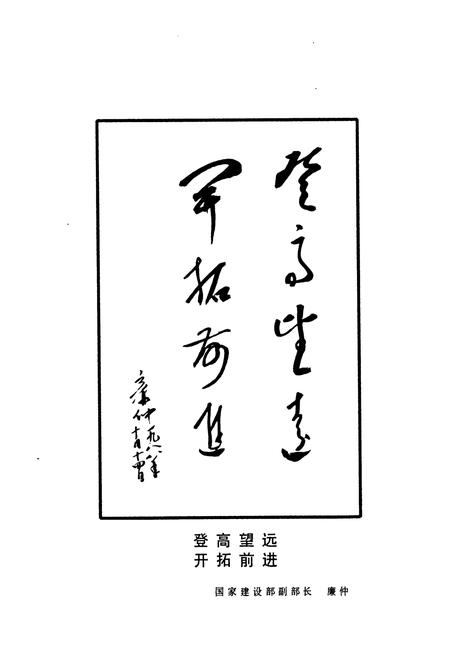 登高望远
開拓前進
廉仲一九八八年
十月十四日
登高望远
开拓前进
国家建设部副部长 廉仲